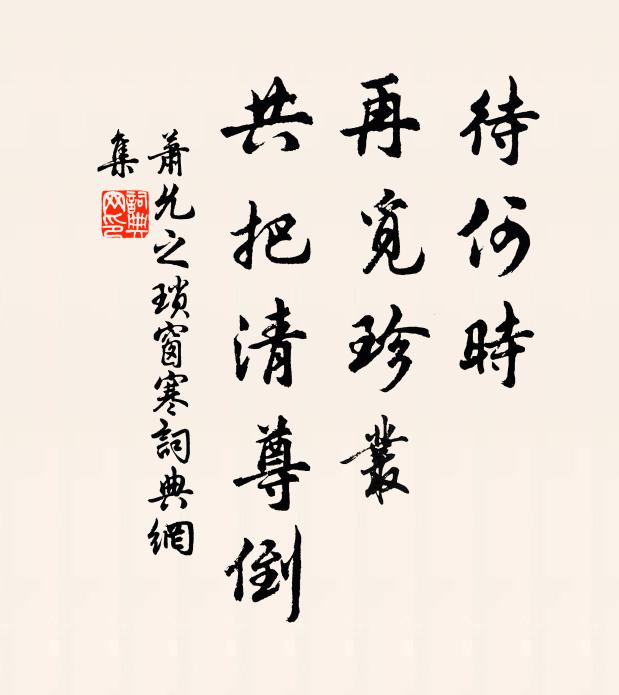 待何時
再覓珍叢
共把清尊倒
蕭允之瑣窗寒詞典網
集
詞典网印